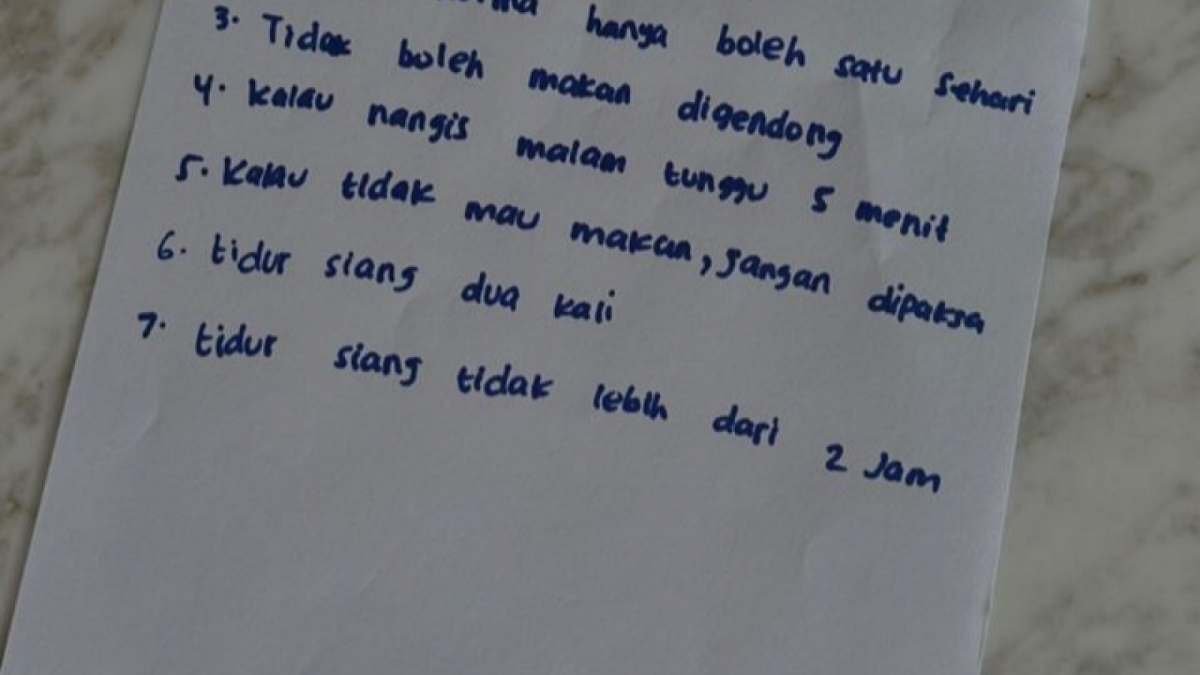 hanya boleh satu sehari
3. Tidak boleh makan digendong
4. Kalau nangis malam tunggu 5 menit
5. Kalau tidak mau makan, jangan dipaksa
6. tidur siang dua kali
7. tidur siang tidak lebih dari 2 Jam